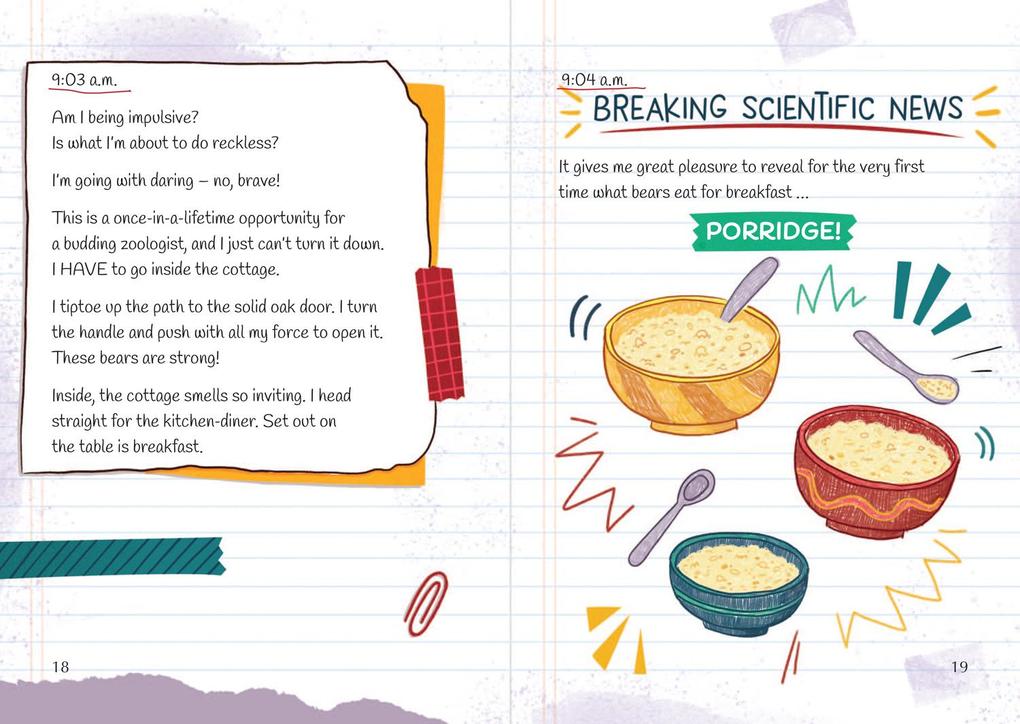 9:03 a.m.
Am I being impulsive?
Is what I'm about to do reckless?
I'm going with daring – no, brave!
This is a once-in-a-lifetime opportunity for
a budding zoologist, and I just can't turn it down.
I HAVE to go inside the cottage.
I tiptoe up the path to the solid oak door. I turn
the handle and push with all my force to open it.
These bears are strong!
Inside, the cottage smells so inviting. I head
straight for the kitchen-diner. Set out on
the table is breakfast.
18
9:04 a.m.
BREAKING SCIENTIFIC NEWS
It gives me great pleasure to reveal for the very first
time what bears eat for breakfast ...
PORRIDGE!
19